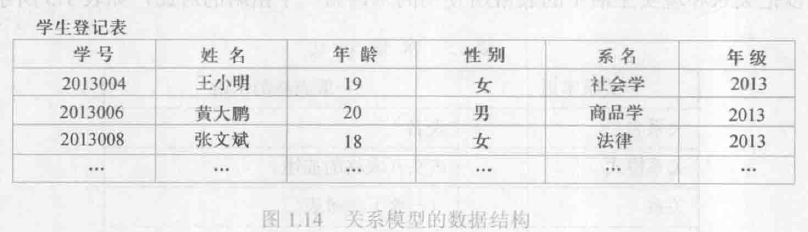 学生登记表
学号 姓名 年龄 性别 系名 年级
2013004 王小明 19 女 社会学 2013
2013006 黄大鹏 20 男 商品学 2013
2013008 张文斌 18 女 法律 2013
… … … … … …
图 1.14 关系模型的数据结构